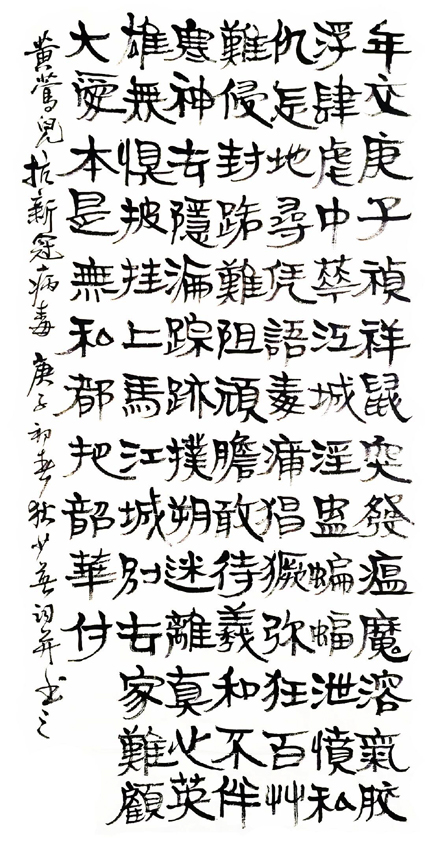 年交庚子禎祥鼠突發瘟魔溶氣膠
浮肆虐中華江城淫蠱蝙蝠泄憤私
仇怎地尋凭語毒痡猖獗弥狂百艸
難侵封路難阻頑膽敢待羲和不伴
寒神去隱淪踪跡撲朔迷離真心英
雄無惧披挂上馬江城别去家難顧
大愛本是無私都把韶華付
黄鶯兒抗新冠病毒 庚子初春狄少英詞并書之